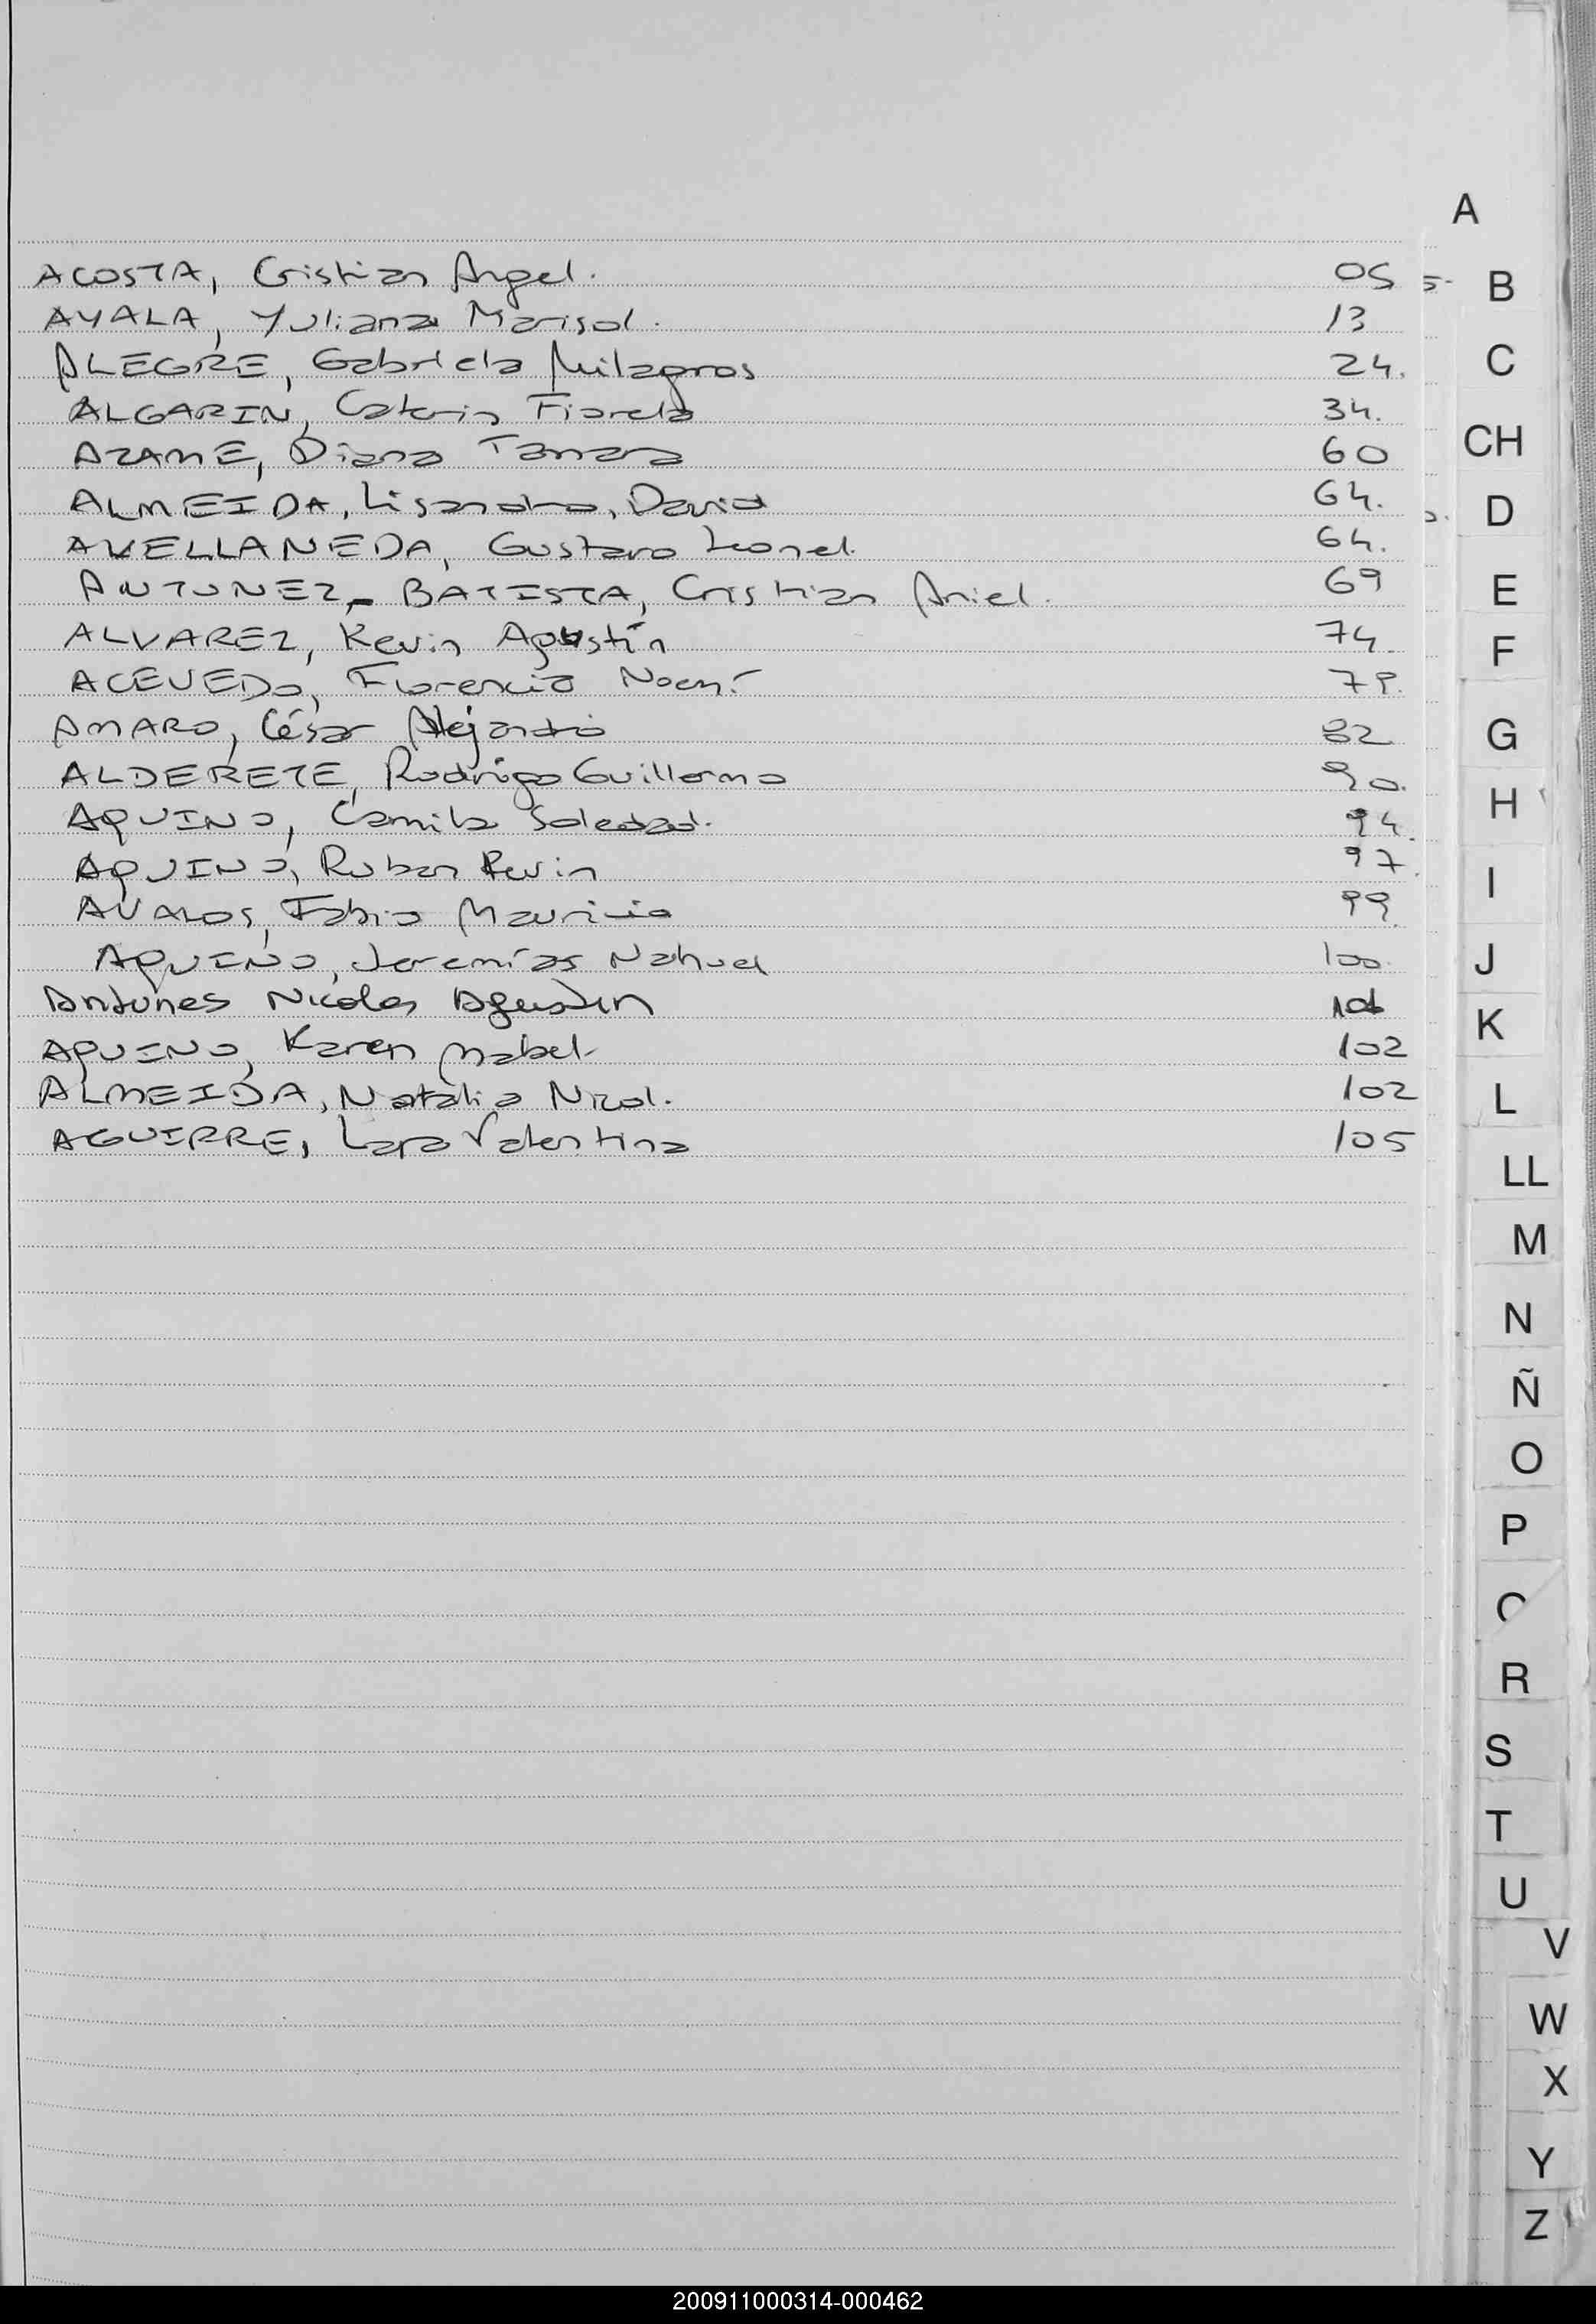 A
ACOSTA, Cristian Angel. 05
AYALA, Yuliana Marisol. 13
ALEGRE, Gabriela Milagros 24.
ALGARIN, Caterin Fiorela 34.
AZAME, Diana Tamara 60
ALMEIDA, Lisandro, David 64.
AVELLANEDA, Gustavo Leonel. 64.
ANTUNEZ - BATISTA, Cristian Ariel. 69
ALVAREZ, Kevin Agustín 74.
ACEVEDO, Florencia Noemí
AMARO, César Alejandro 82
ALDERETE, Rodrigo Guillermo 90.
AQUINO, Camila Soledad. 94.
AQUINO, Ruben Kevin 97.
AVALOS, Fabio Mauricio 99.
AQUINO, Jeremías Nahuel 100.
Antunes Nicolas Agustin
AQUINO, Karen Mabel 102
ALMEIDA, Natalia Nicol. 102
AGUIRRE, Lara Valentina 105
B
C
CH
D
E
F
G
H
I
J
K
L
LL
M
N
Ñ
O
P
R
S
T
U
V
W
X
Y
Z
200911000314-000462